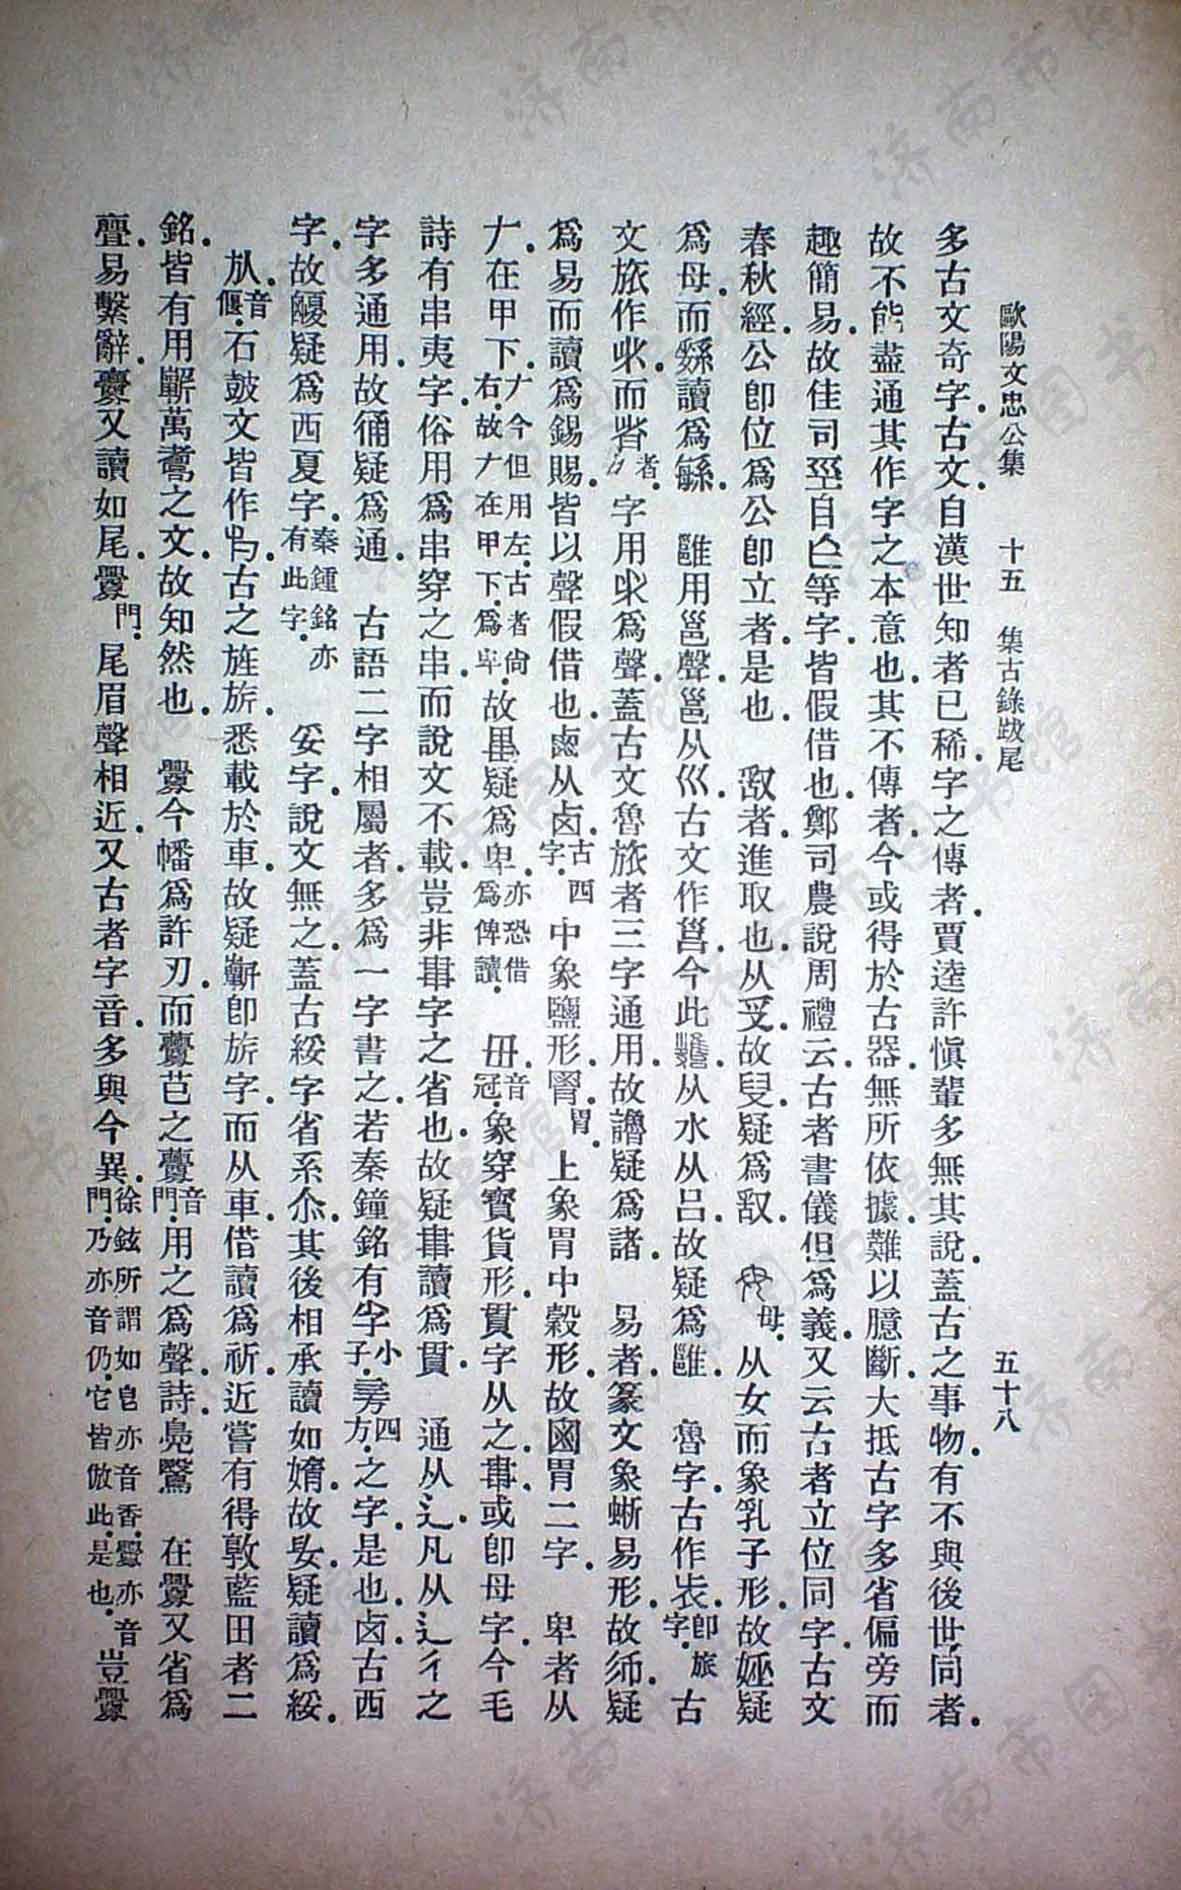 歐陽文忠公集　十五　集古錄跋尾　五十八
多古文奇字.古文.自漢世知者已稀.字之傳者.賈逵許愼輩多無其說.蓋古之事物.有不與後世同者.
故不能盡通其作字之本意也.其不傳者.今或得於古器.無所依據.難以臆斷.大抵古字多省偏旁而
趣簡易.故佳司巠自等字.皆假借也.鄭司農說周禮云.古者書儀但爲義.又云古者立位同字.古文
春秋經.公卽位爲公卽立者.是也　㪅者.進取也.从𠬪.故疑爲㪅　母.从女而象乳子形.故娾疑
爲母.而緐讀爲緐　雝用邕聲.邕从巛.古文作.今此从水从吕.故疑爲雝　魯字.古作.卽旅字.古
文旅作.而者.字用爲聲.蓋古文魯旅者三字通用.故譜疑爲諸　易者.篆文象蜥易形.故疑
爲易而讀爲錫賜.皆以聲假借也.鹵从卤.古西字.中象鹽形.胃.上象胃中穀形.故國胃二字.　卑者从
𠂇.在甲下.𠂇今但用左.古者尙右.故𠂇在甲下.爲卑.故疑爲卑.亦恐借爲俾讀.　毌音冠.象穿寶貨形.貫字从之.或卽毋字.今毛
詩有串夷字.俗用爲串穿之串.而說文不載.豈非字之省也.故疑讀爲貫　通从辶.凡从辶彳之
字多通用.故疑爲通　古語二字相屬者.多爲一字書之.若秦鐘銘有小子.四方.之字.是也.卤.古西
字.故疑爲西夏字.秦鍾銘亦有此字.　妥字.說文無之.蓋古綏字省系尒.其後相承讀如媠.故疑讀爲綏.
㫃音偃.石鼓文皆作.古之旌旂.悉載於車.故疑卽旂字.而从車.借讀爲祈.近嘗有得敦藍田者.二
銘.皆有用萬耋之文.故知然也　釁今幡爲許刃.而虋芑之虋音門.用之爲聲.詩.鳧鷖　在釁又省爲
亹.易繫辭.亹又讀如尾.釁門.尾眉聲相近.又古者字音.多與今異.徐鉉所謂如皀亦音香.釁亦音門.乃亦音仍.它皆倣此.是也.豈釁